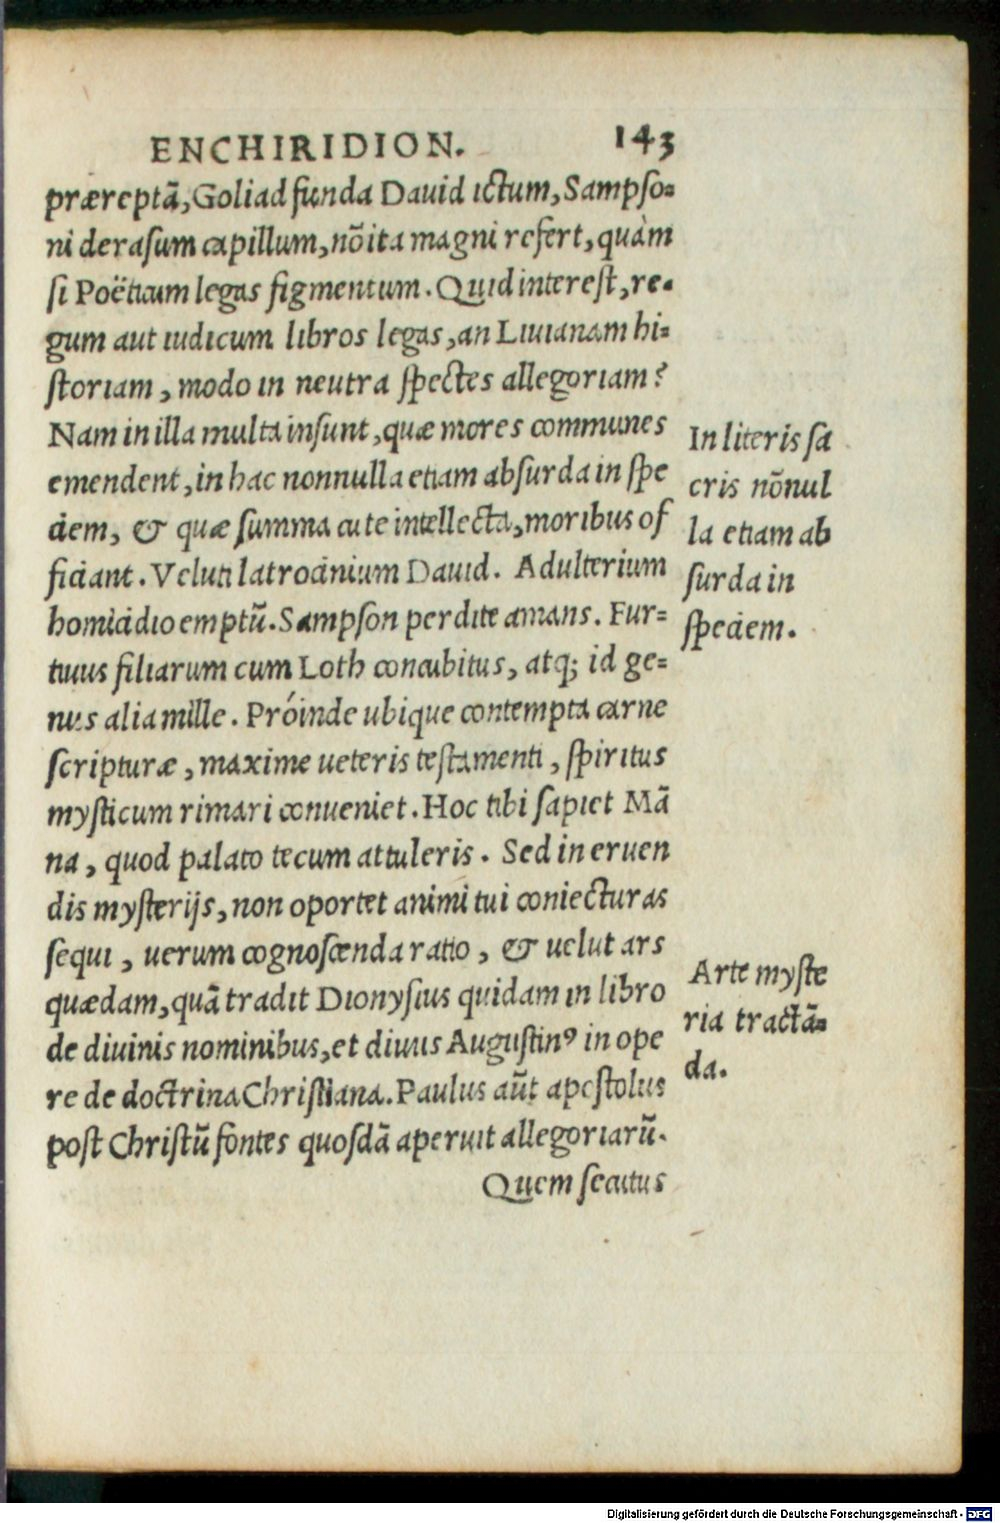 ENCHIRIDION. 143
præreptã, Goliad funda Dauid ictum, Sampſo=
ni deraſum capillum, nõ ita magni refert, quàm
ſi Poëticum legas figmentum. Quid intereſt, re=
gum aut iudicum libros legas, an Liuianam hi=
ſtoriam, modo in neutra ſpectes allegoriam?
Nam in illa multa inſunt, quæ mores communes
emendent, in hac nonnulla etiam abſurda in ſpe
ciem, & quæ ſumma cute intellecta, moribus of
ficiant. Veluti latrocinium Dauid. Adulterium
homicidio emptũ. Sampſon perdite amans. Fur=
tiuus filiarum cum Loth concubitus, atq; id ge=
nus alia mille. Próinde ubique contempta carne
ſcripturæ, maxime ueteris teſtamenti, ſpiritus
myſticum rimari conueniet. Hoc tibi ſapiet Mã
na, quod palato tecum attuleris. Sed in eruen
dis myſterijs, non oportet animi tui coniecturas
ſequi, uerum cognoſcenda ratio, & uelut ars
quædam, quã tradit Dionyſius quidam in libro
de diuinis nominibus, et diuus Auguſtinꝰ in ope
re de doctrina Chriſtiana. Paulus aũt apoſtolus
poſt Chriſtũ fontes quoſdã aperuit allegoriarũ.
Quem ſecutus
In literis ſa
cris nõnul
la etiam ab
ſurda in
ſpeciem.
Arte myſte
ria tractã=
da.
Digitalisierung gefördert durch die Deutsche Forschungsgemeinschaft - DFG